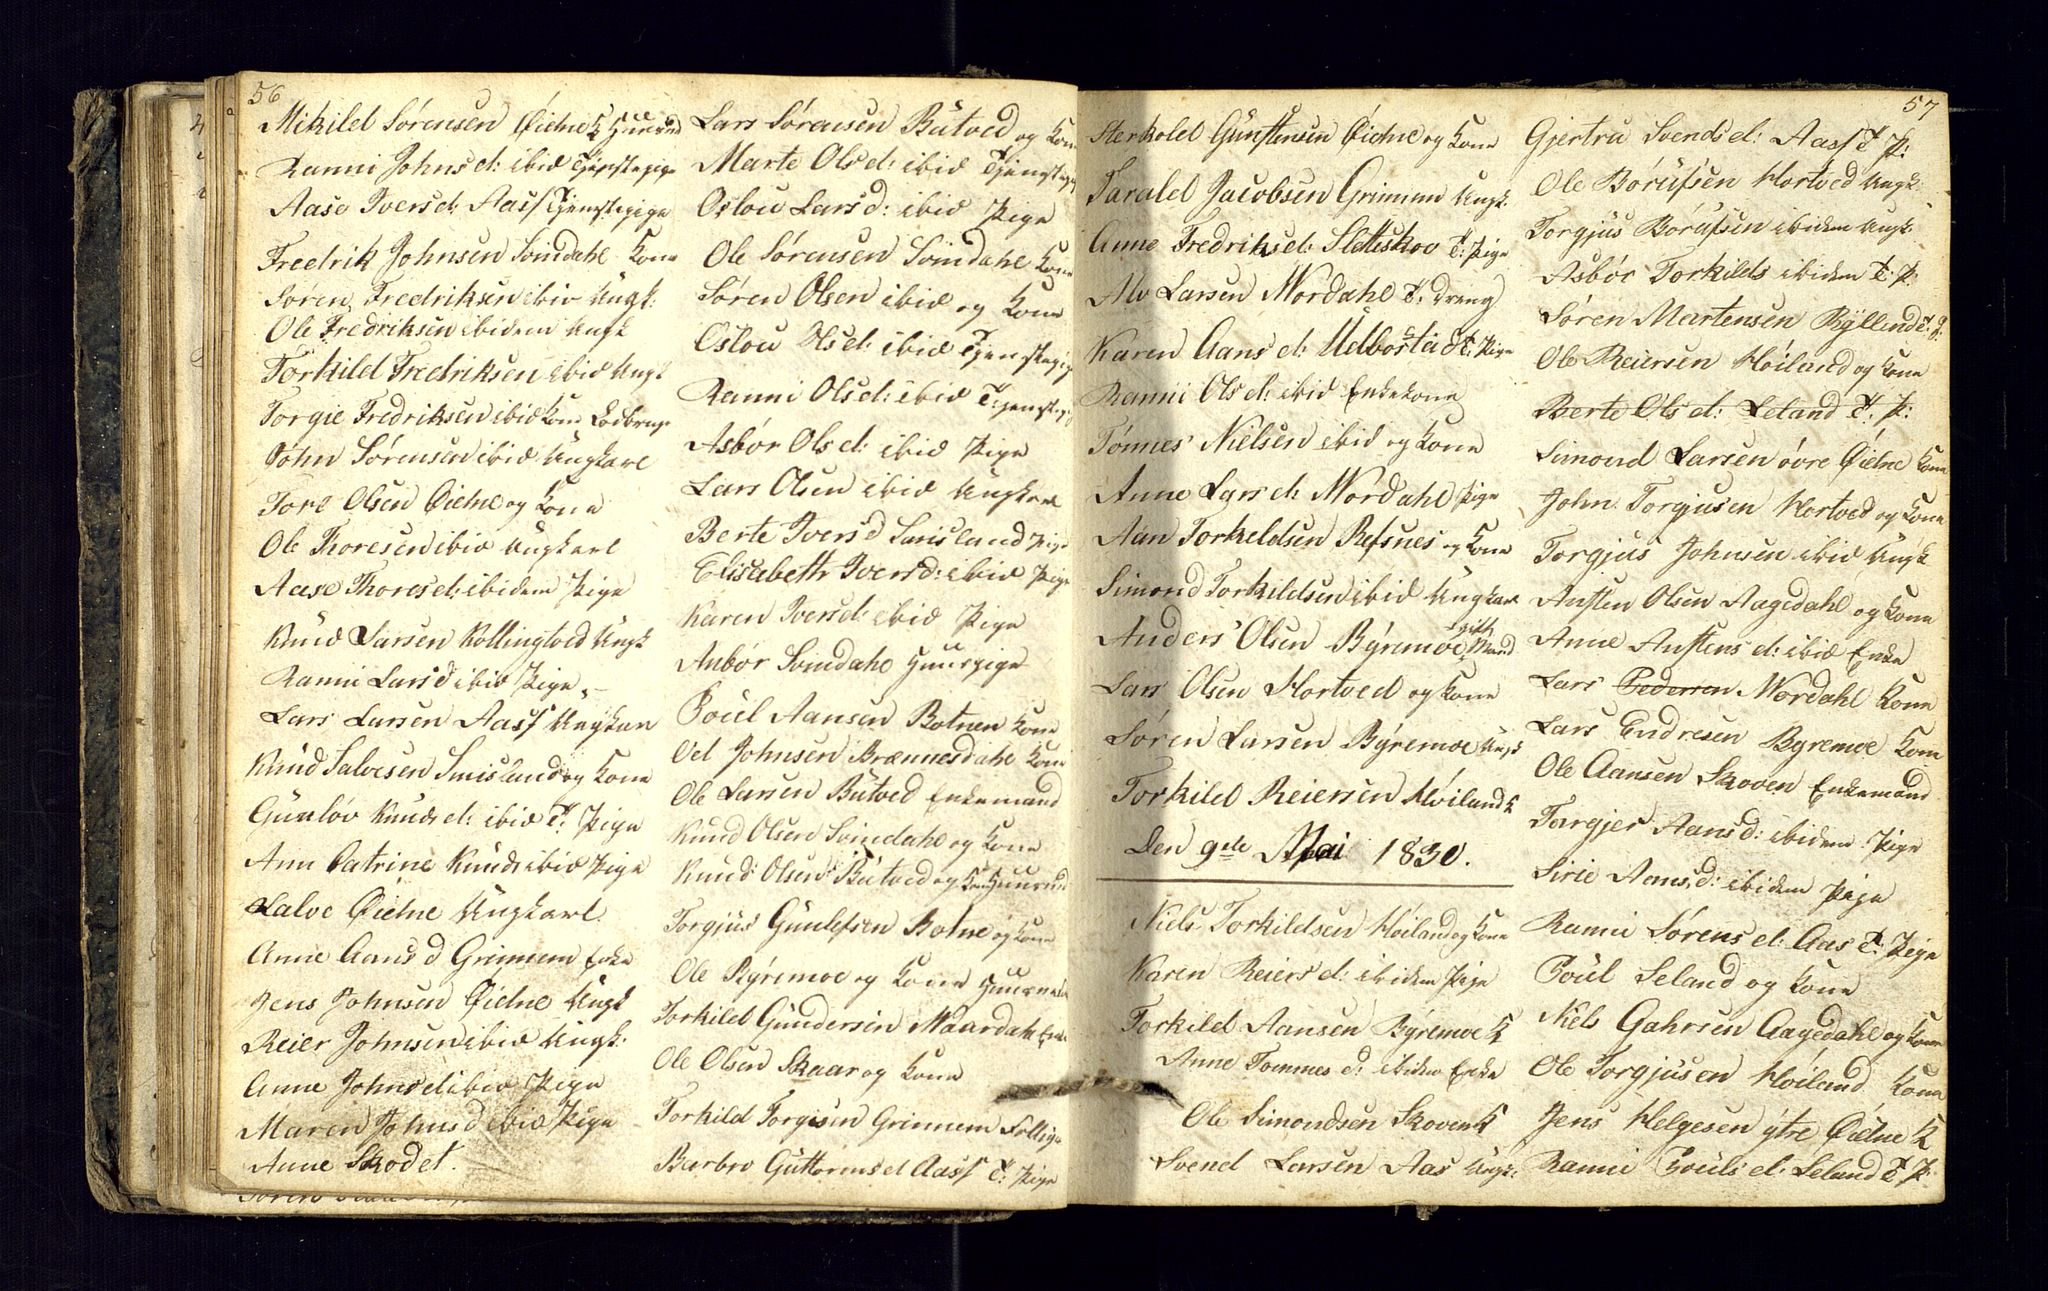 56
Mikild Sørensen Øidne K Huusmd
Ranni Johnsd: ibid Tjenstepige
Aase Iversd: Aass Tjenstepige
Fredrik Johnsen Svindahl Kone
Søren Fredriksen ibid Ungk:
Ole Fredriksen ibidem Ungk
Torkild Fredriksen ibid Ungk
Torgie Fredriksen ibid Kone
John Sørensen ibid Ungkarl
Tore Olsen Øidne og Kone
Ole Thoresen ibid Ungkarl
Aase Thoresd: ibidem Pige
Knud Larsen Kollingtved Ungk
Ranni Larsd ibid Pige
Lars Larsen Aass Ungkar
Knud Salvesen Smisland og Kone
Gunlöv Knudsd: ibid T: Pige
Ann Catrine Knuds ibid Pige
Salve Øidne Ungkarl
Anne Aansd Grimem Enke
Jens Johnsen Øidne Ungk
Reier Johnsen ibid Ungk:
Anne Johnsd ibid Pige
Maren Johnsd ibid Pige
Anne Skodet.
Lars Sørensen Butved og Kone
Marte Olsd: ibid Tjenstepige
Oslou Larsd: ibid Pige
Ole Sørensen Svindahl Kone
Søren Olsen ibid og Kone
Oslou Olsd: ibid Tjenstepige
Ranni Olsd: ibid Tjenstepige
Asbör Olsd: ibid Pige
Lars Olsen ibid Ungkarl
Berte Iversd Smisland Pige
Elisabeth Iversd: ibid Pige
Karen Iversd: ibid Pige
Anbör Svindahl Huuspige
Poul Aansen Botnen Kone
Od Johnsen Brænnesdahl Kone
Ole Larsen Butved Enkemand
Knud Olsen Svindahl og Kone
Knud Olsen Butved og Kone Huusmd
Torgjus Gunlefsen Botne og Kone
Ole Byremoe og Kone
Torkild Gundersen Maardahl
Ole Olsen Skaar og Kone
Torkild Torgisen Grimem
Barbro Guttormsd Aass T: Pige
57
Sterkold Gunstensen Øidne og Kone
Tarald Jacobsen Grimem Ungk.
Anne Fredriksd: Sletteskov T: Pige
Alv Larsen Mördahl T: Dreng
Karen Aansd: Udbostad T: Pige
Ranni Olsd: ibid Enkekone
Tönnes Nielsen ibid og Kone
Anne Larsd: Mördahl Pige
Aan Torkeldsen Refsnes og Kone
Simond Torkildsen ibid Ungkarl
Anders Olsen Byremoe gift Mand
Lars Olsen Hortved og Kone
Søren Larsen Byremoe Ungk
Torkild Reiersen Höiland K
Den 9de Mai 1830.
Niels Torkildsen Höiland og Kone
Karen Reiersd: ibidem Pige
Torkild Aansen Byremoe K
Anne Tommesd: ibidem Enke
Ole Simondsen Skoven K
Svend Larsen Aas Ungk:
Gjertru Svendsd: Aass T: P:
Ole Börufsen Hortved Ungk:
Torgjus Börufsen ibidem Ungk:
Asbör Torkilds ibidem T: P:
Søren Martensen Ryllend
Ole Reiersen Höiland og Kone
Berte Olsd: Leland T: P:
Simond Larsen övre Øidne Kone
John Torgjusen Hortved og Kone
Torgjus Johnsen ibid Ungk
Ansten Olsen Aagedahl og Kone
Anne Anstensd: ibid Enke
Lars Pedersen Mördahl Kone
Lars Endresen Byremoe Kone
Ole Aansen Skoven Enkemand
Torgjer Aansd: ibidem Pige
Sirie Aansd: ibidem Pige
Ranni Sørensd: Aas T: Pige
Poul Seland og Kone
Niels Gahrsen Aagedahl og Kone
Ole Torgjusen Höiland Kone
Jens Helgesen ytre Øidne K
Ranni Poulsd: Seland T: P: